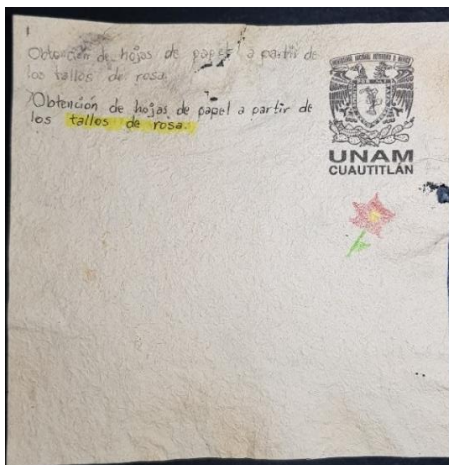 Obtención de hojas de papel a partir de
los tallos de rosa.
Obtención de hojas de papel a partir de
los tallos de rosa.
UNIVERSIDAD NACIONAL AUTONOMA DE MEXICO
UNAM
CUAUTITLÁN